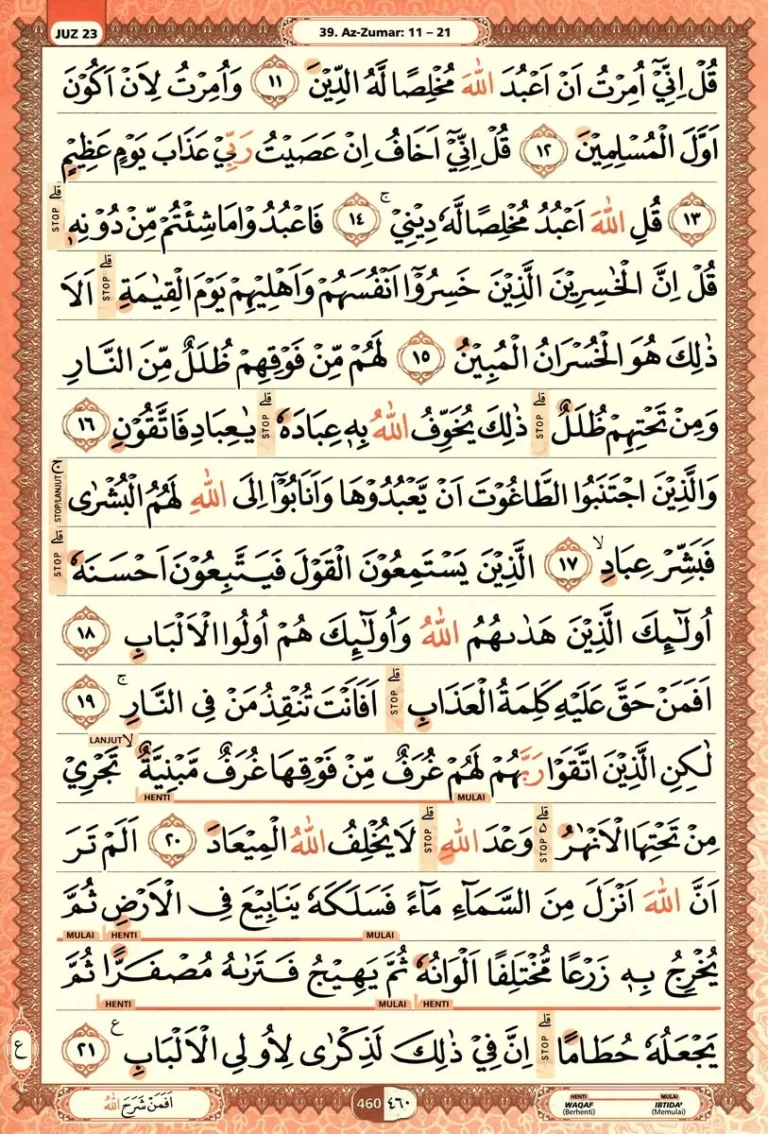 JUZ 23
39. Az-Zumar: 11 – 21
قُلْ اِنِّيْٓ اُمِرْتُ اَنْ اَعْبُدَ اللّٰهَ مُخْلِصًا لَّهُ الدِّيْنَۙ ١١ وَاُمِرْتُ لِاَنْ اَكُوْنَ
اَوَّلَ الْمُسْلِمِيْنَ ١٢ قُلْ اِنِّيْٓ اَخَافُ اِنْ عَصَيْتُ رَبِّيْ عَذَابَ يَوْمٍ عَظِيْمٍ
١٣ قُلِ اللّٰهَ اَعْبُدُ مُخْلِصًا لَّهٗ دِيْنِيْۚ ١٤ فَاعْبُدُوْا مَا شِئْتُمْ مِّنْ دُوْنِهٖۗ STOP
قُلْ اِنَّ الْخٰسِرِيْنَ الَّذِيْنَ خَسِرُوْٓا اَنْفُسَهُمْ وَاَهْلِيْهِمْ يَوْمَ الْقِيٰمَةِۗ STOP اَلَا
ذٰلِكَ هُوَ الْخُسْرَانُ الْمُبِيْنُ ١٥ لَهُمْ مِّنْ فَوْقِهِمْ ظُلَلٌ مِّنَ النَّارِ
وَمِنْ تَحْتِهِمْ ظُلَلٌۗ STOP ذٰلِكَ يُخَوِّفُ اللّٰهُ بِهٖ عِبَادَهٗۗ STOP يٰعِبَادِ فَاتَّقُوْنِ ١٦
وَالَّذِيْنَ اجْتَنَبُوا الطَّاغُوْتَ اَنْ يَّعْبُدُوْهَا وَاَنَابُوْٓا اِلَى اللّٰهِ لَهُمُ الْبُشْرٰى STOP/LANJUT
فَبَشِّرْ عِبَادِۙ ١٧ الَّذِيْنَ يَسْتَمِعُوْنَ الْقَوْلَ فَيَتَّبِعُوْنَ اَحْسَنَهٗۗ STOP
اُولٰۤىِٕكَ الَّذِيْنَ هَدٰىهُمُ اللّٰهُ وَاُولٰۤىِٕكَ هُمْ اُولُوا الْاَلْبَابِ ١٨
اَفَمَنْ حَقَّ عَلَيْهِ كَلِمَةُ الْعَذَابِۗ STOP اَفَاَنْتَ تُنْقِذُ مَنْ فِى النَّارِۚ ١٩
LANJUT
لٰكِنِ الَّذِيْنَ اتَّقَوْا رَبَّهُمْ لَهُمْ غُرَفٌ مِّنْ فَوْقِهَا غُرَفٌ مَّبْنِيَّةٌۙ تَجْرِيْ
MULAI HENTI
مِنْ تَحْتِهَا الْاَنْهٰرُ ەۗ STOP وَعْدَ اللّٰهِۗ STOP لَا يُخْلِفُ اللّٰهُ الْمِيْعَادَ ٢٠ اَلَمْ تَرَ
اَنَّ اللّٰهَ اَنْزَلَ مِنَ السَّمَاۤءِ مَاۤءً فَسَلَكَهٗ يَنَابِيْعَ فِى الْاَرْضِ ثُمَّ
MULAI HENTI MULAI
يُخْرِجُ بِهٖ زَرْعًا مُّخْتَلِفًا اَلْوَانُهٗ ثُمَّ يَهِيْجُ فَتَرٰىهُ مُصْفَرًّا ثُمَّ
HENTI MULAI HENTI
يَجْعَلُهٗ حُطَامًاۗ STOP اِنَّ فِيْ ذٰلِكَ لَذِكْرٰى لِاُولِى الْاَلْبَابِ ࣖ ٢١
ع
اَفَمَنْ شَرَحَ اللّٰهُ
460 ٤٦٠
HENTI WAQAF (Berhenti)
MULAI IBTIDA' (Memulai)